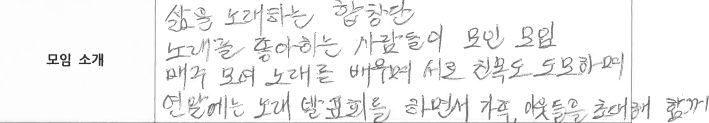 모임 소개
삶을 노래하는 합창단
노래를 좋아하는 사람들이 모인 모임
매주 모여 노래를 배우며 서로 친목도 도모하며
연말에는 노래 발표회를 하면서 가족, 이웃들을 초대해 함께